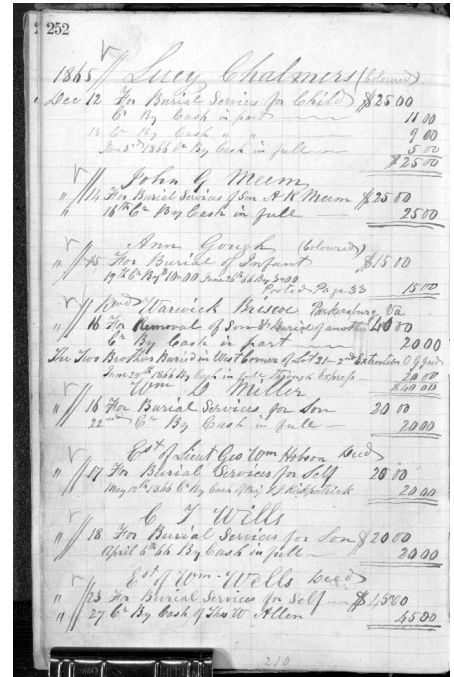 252
1865 Lucy Chalmers (Coloured)
Dec 12 For Burial Services for Child $25 00
Cr By Cash in part 11 00
18 Cr By Cash " " 9 00
Jan 3rd 1866 Cr By Cash in full 5 00
$25 00
John G Meem
" 14 For Burial Services of Son A R Meem $25 00
" 18th Cr By Cash in full 25 00
Ann Gough (Coloured)
" 15 For Burial of Infant $15 00
19th Cr By $10 00 June 26th 66 By 5 00
Posted Page 33 15 00
Warwick Briscoe Parkersburg Va
" 16 For Removal of Son & Burial of another 40 00
Cr By Cash in part 20 00
The Two Brothers Buried in West Corner of Lot 21 - 2nd Extention O G Yard
June 20th 1866 By Cash in full through Express 20 00
$40 00
Wm D Miller
" 16 For Burial Services for Son 20 00
22nd Cr By Cash in full 20 00
Est of Lieut Geo Wm Hobson Decd
" 17 For Burial Services for Self 20 00
May 12th 1866 Cr By Cash of Maj Kirkpatrick 20 00
C T Wills
" 18 For Burial Services for Son $20 00
April 6th 66 By Cash in full 20 00
Est of Wm Wells Decd
" 23 For Burial Services for Self $45 00
" 27 Cr By Cash of Thos W Allen 45 00
210